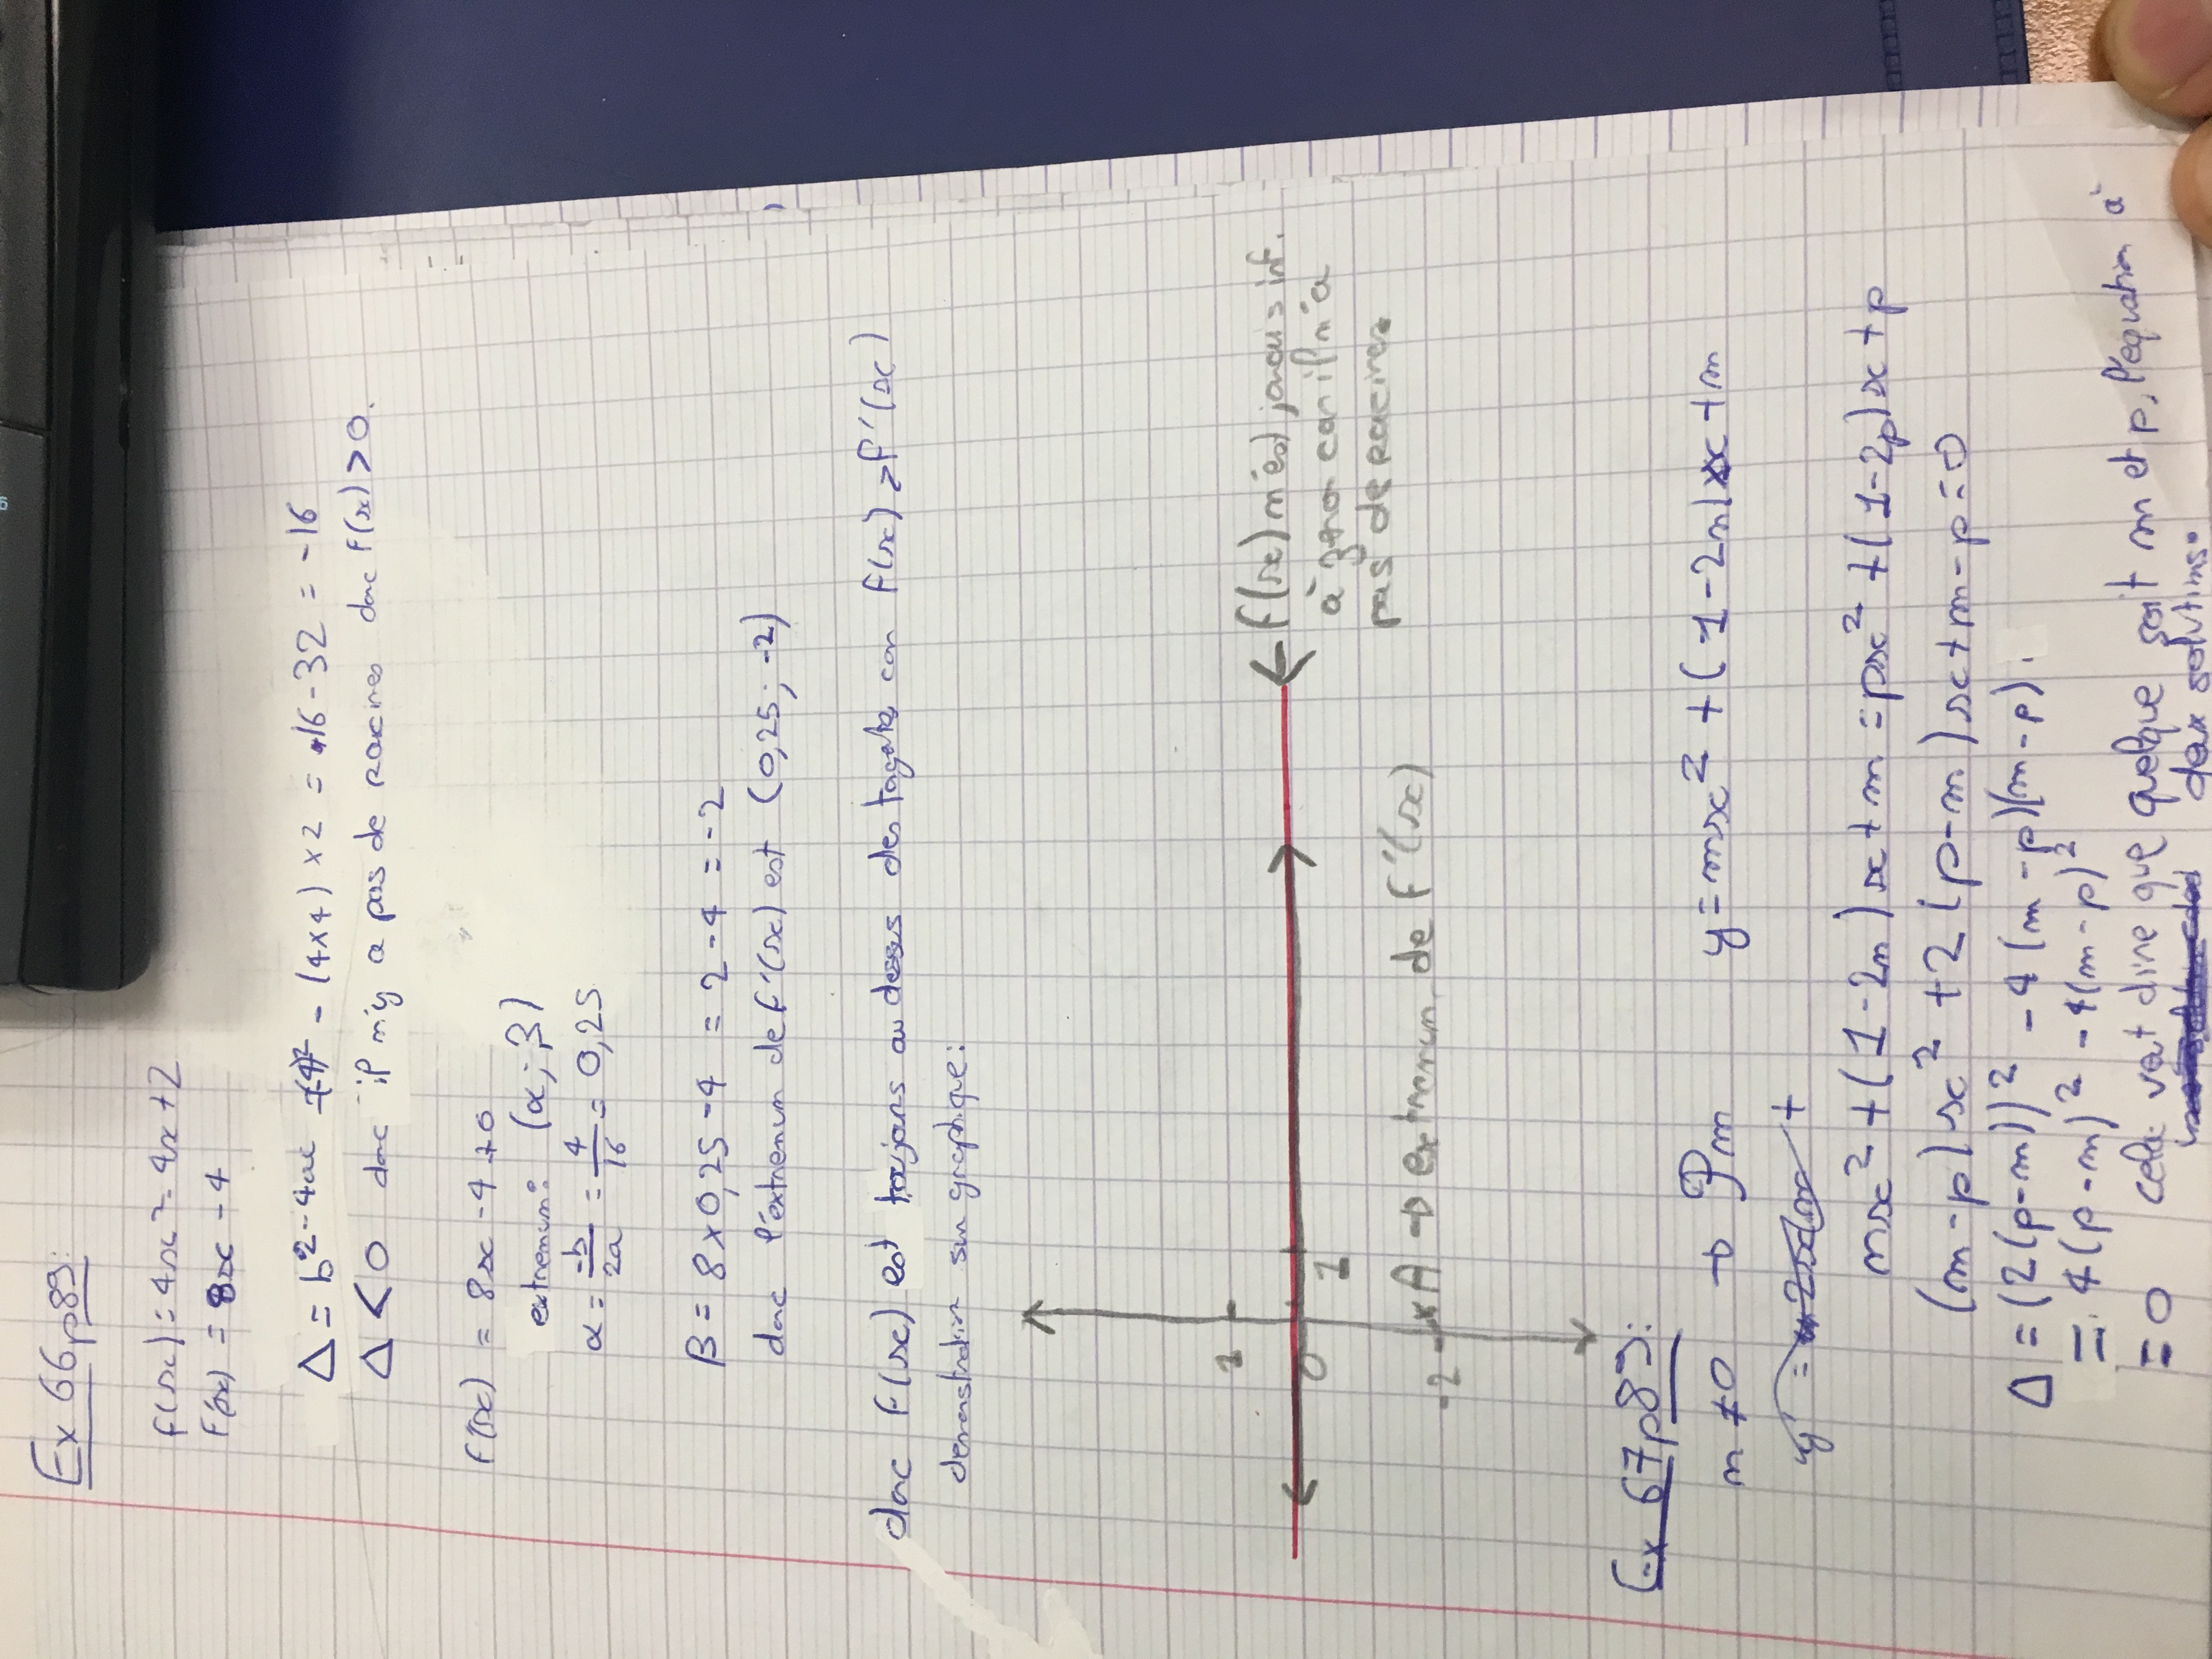 Ex 66p89:
f(x) = 4x² - 4x + 2
f'(x) = 8x - 4
Δ = b² - 4ac = (4)² - (4×4) × 2 = 16 - 32 = -16
Δ < 0 donc il n'y a pas de racines donc f(x) > 0.
f'(x) = 8x - 4 + 0
extremum: (α; β)
α = -b/2a = 4/16 = 0,25
β = 8 × 0,25 - 4 = 2 - 4 = -2
donc l'extremum de f'(x) est (0,25; -2)
donc f(x) est toujours au dessus des tagentes car f(x) > f'(x)
demonstration sur graphique:
1
0
1
← f(x) n'est jamais inf.
à zero car il n'a
pas de racines
-2 × A → extremum de f'(x)
Ex 67p89:
m ≠ 0 → Pm y = mx² + (1 - 2m)x + m
y' = +
mx² + (1 - 2m)x + m = px² + (1 - 2p)x + p
(m - p)x² + 2(p - m)x + m - p = 0
Δ = (2(p - m))² - 4(m - p)(m - p).
= 4(p - m)² - 4(m - p)²
= 0 cela veut dire que quelque soit m et p, l'equation a
deux solutions.